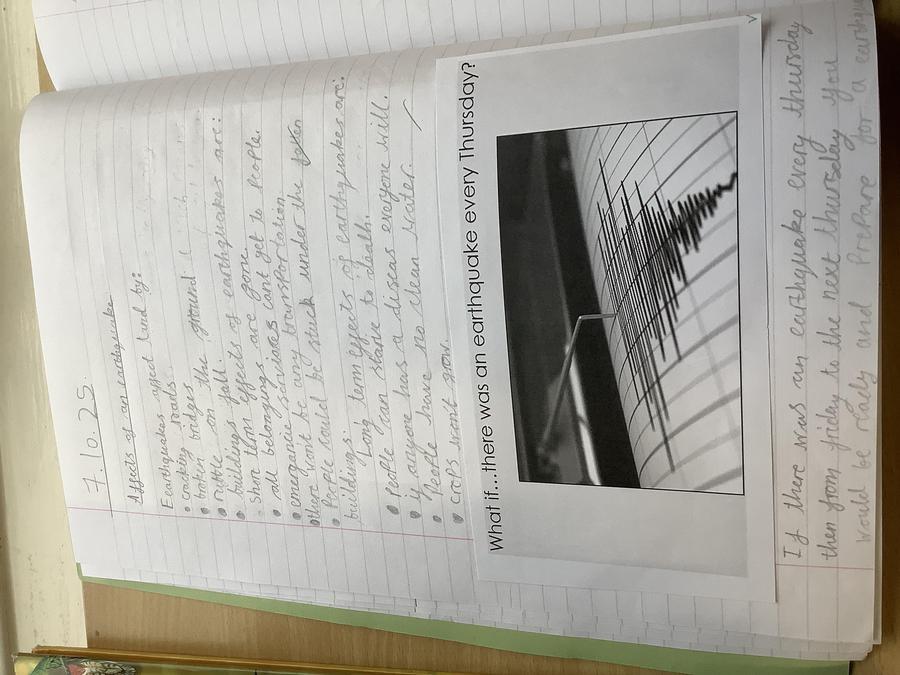 7.10.25.
Affects of an earthquake
Earthquakes affect land by:
• cracking roads
• braking bridges
• ruble on the ground
• buildings fall
- Short term effects of earthquakes are:
• all belongings are gone.
• emergancie services cant get to people.
• there won't be any transportation
• People could be stuck under the
buildings.
Long term effects of earthquakes are:
• People can starve to death.
• if anyone has a diseas everyone will.
• People have no clean water.
• Crops won't grow.
What if...there was an earthquake every Thursday?
If there was an earthquake every thursday
then from friday to the next thursday you
would be and prepare for a